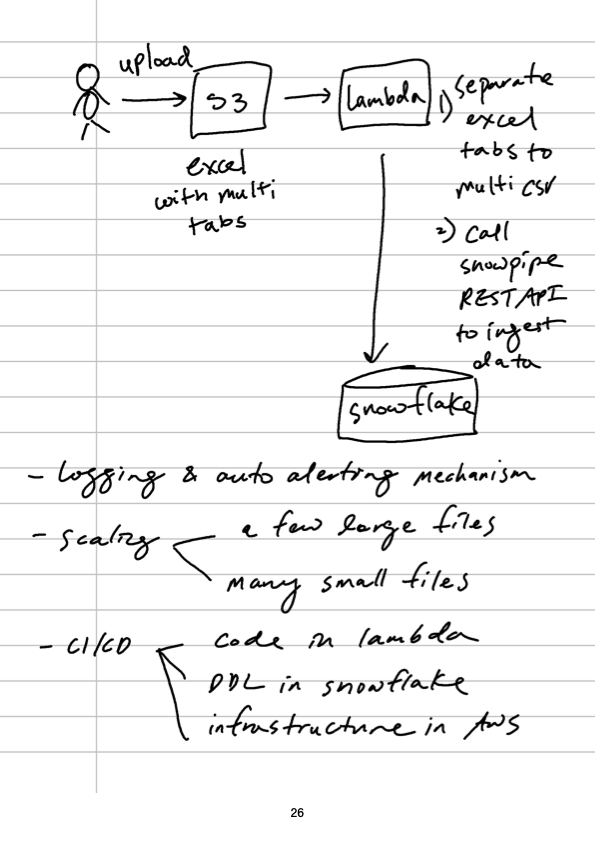 upload
S3
lambda
excel
with multi
tabs
1) separate
excel
tabs to
multi csv
2) call
snowpipe
REST API
to ingest
data
snowflake
- logging & auto alerting mechanism
- scaling
a few large files
many small files
- CI/CD
code in lambda
DDL in snowflake
infrastructure in AWS
26